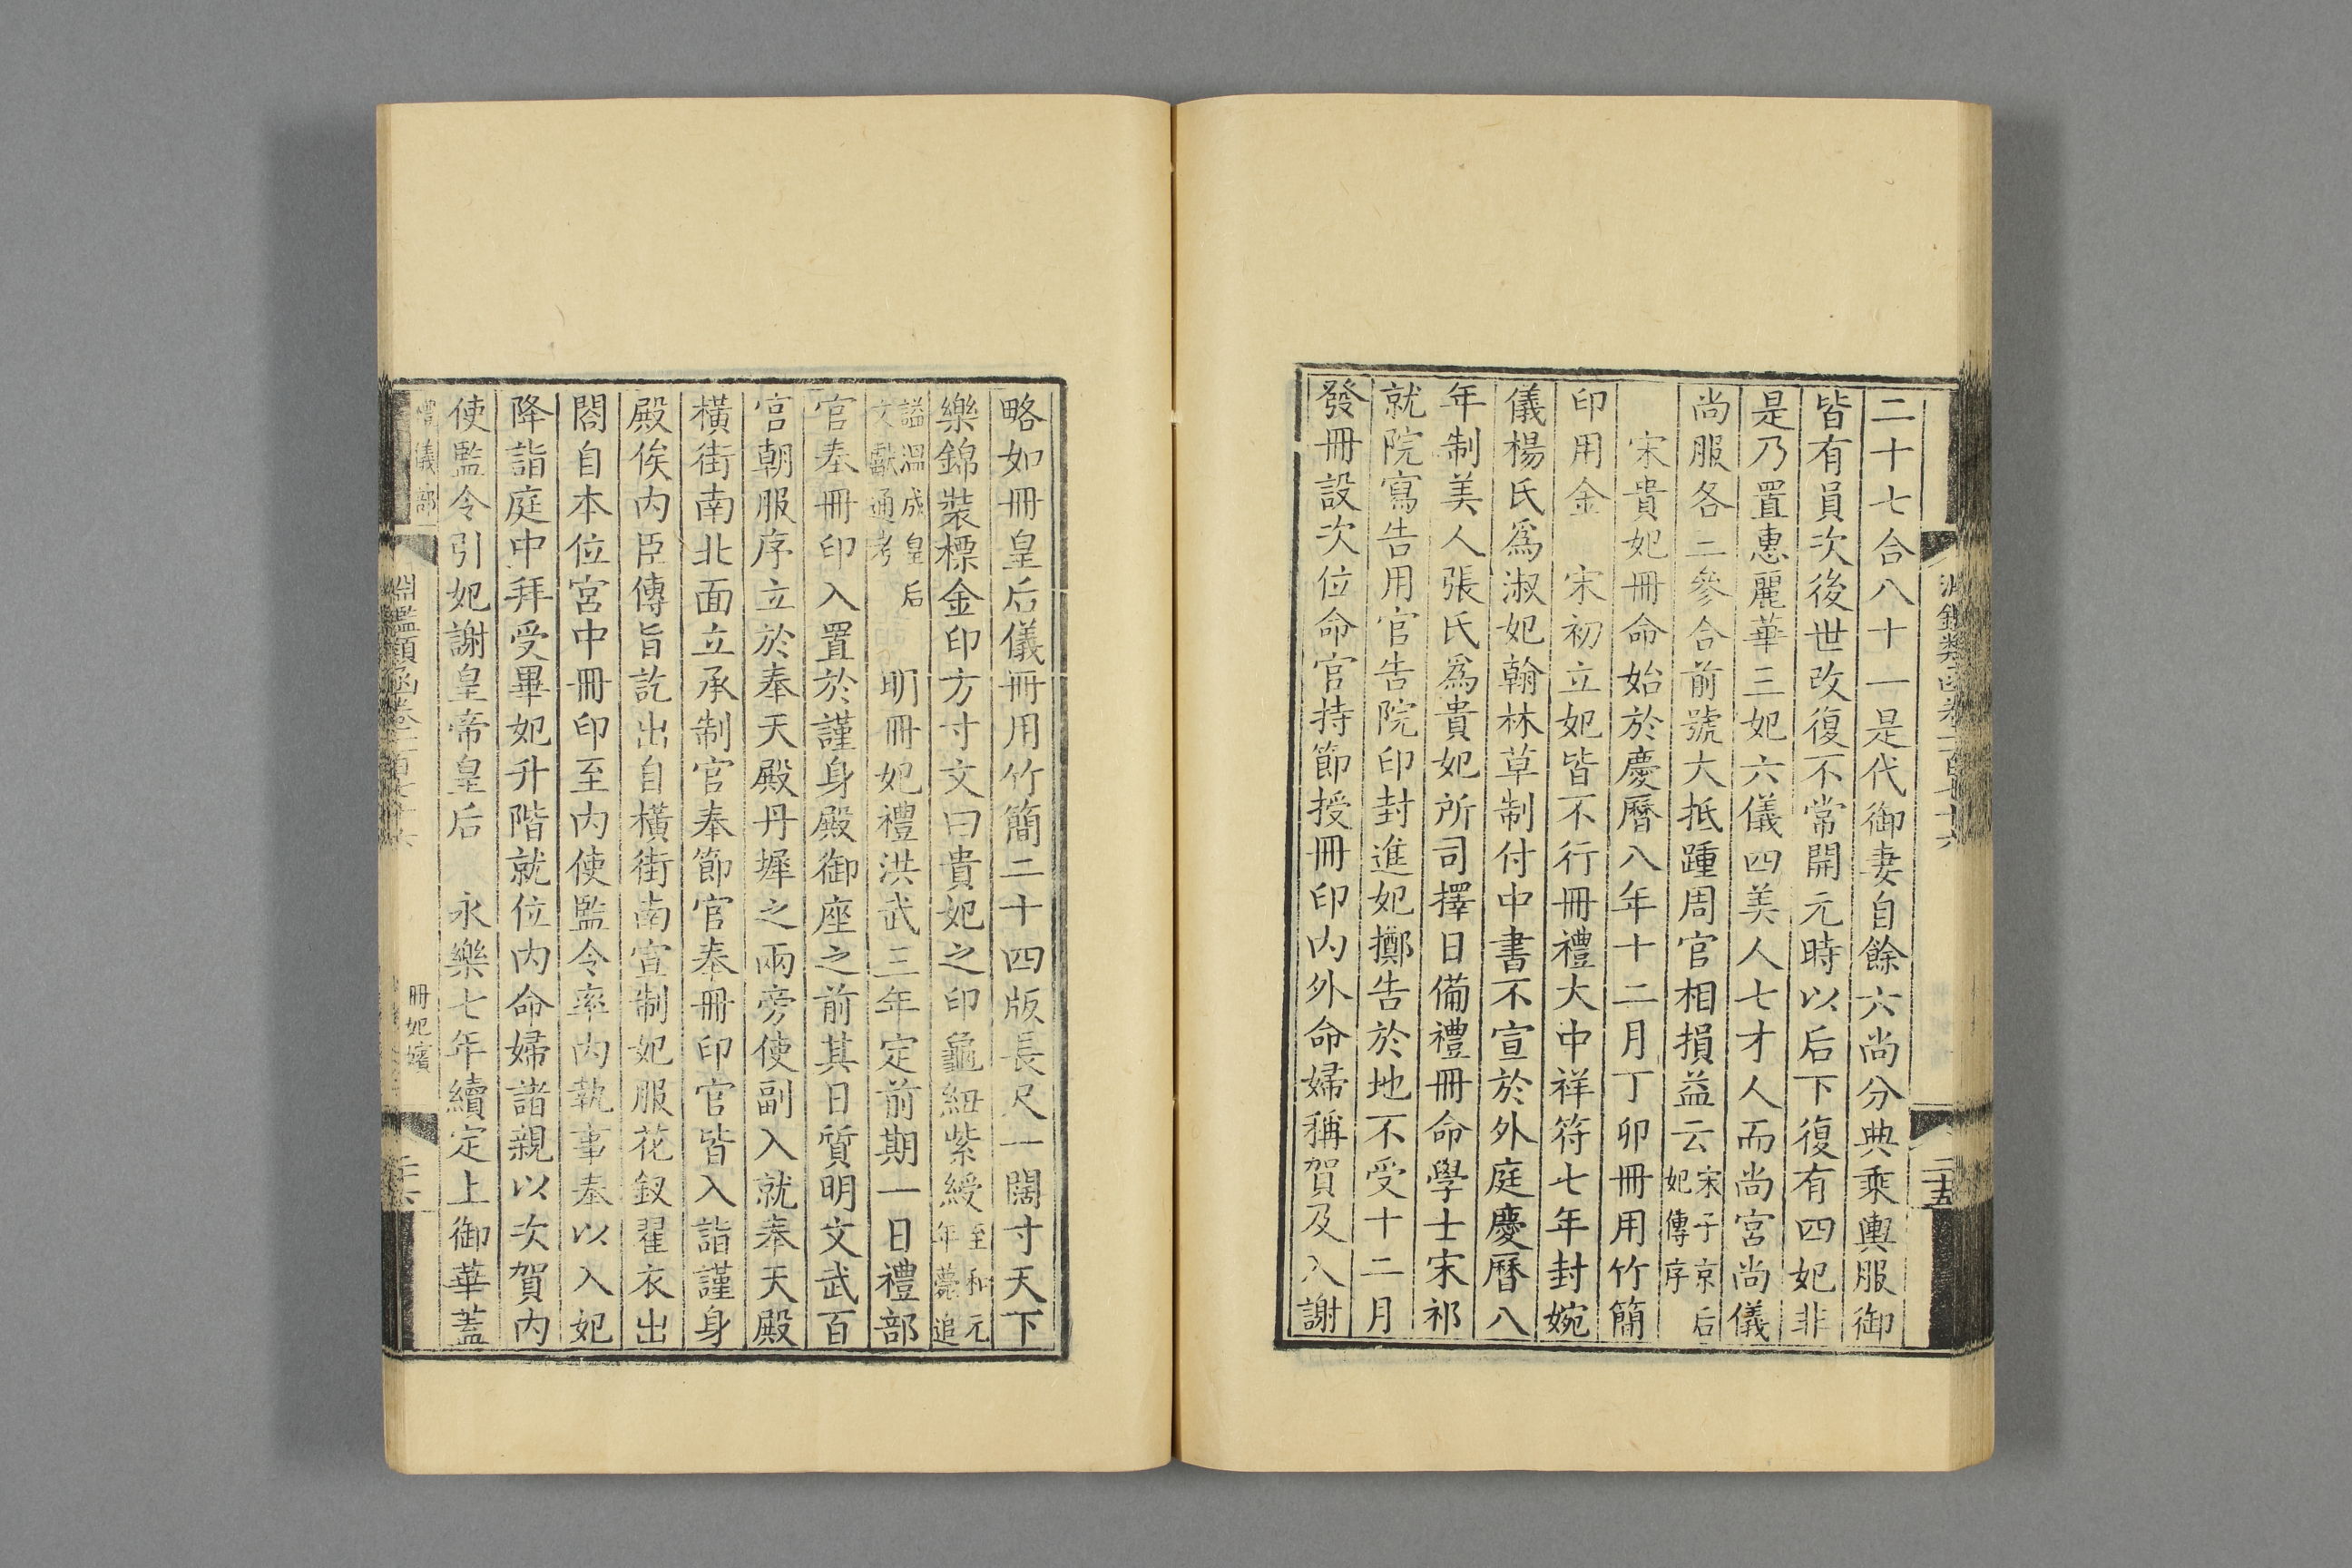 二十七合八十一是代御妻自餘六尚分典乘輿服御
皆有員次後世改復不常開元時以后下復有四妃非
是乃置惠麗華三妃六儀四美人七才人而尚宮尚儀
尚服各二參合前號大抵踵周官相損益云宋子京后
妃傳序
宋貴妃冊命始於慶曆八年十二月丁卯冊用竹簡
印用金　宋初立妃皆不行冊禮大中祥符七年封婉
儀楊氏爲淑妃翰林草制付中書不宣於外庭慶曆八
年制美人張氏爲貴妃所司擇日備禮冊命學士宋祁
就院寫告用官告院印封進妃擲告於地不受十二月
發冊設次位命官持節授冊印內外命婦稱賀及入謝
略如冊皇后儀冊用竹簡二十四版長尺一闊寸天下
樂錦裝標金印方寸文曰貴妃之印龜紐紫綬至和元
年薨追
謚溫成皇后
文獻通考　明冊妃禮洪武三年定前期一日禮部
官奉冊印入置於謹身殿御座之前其日質明文武百
官朝服序立於奉天殿丹墀之兩旁使副入就奉天殿
橫街南北面立承制官奉節官奉冊印官皆入詣謹身
殿俟內臣傳旨訖出自橫街南宣制妃服花釵翟衣出
閤自本位宮中冊印至內使監令率內執事奉以入妃
降詣庭中拜受畢妃升階就位內命婦諸親以次賀內
使監令引妃謝皇帝皇后　永樂七年續定上御華蓋
儀部
淵鑑類函卷一百七十六
冊妃嬪
二十五